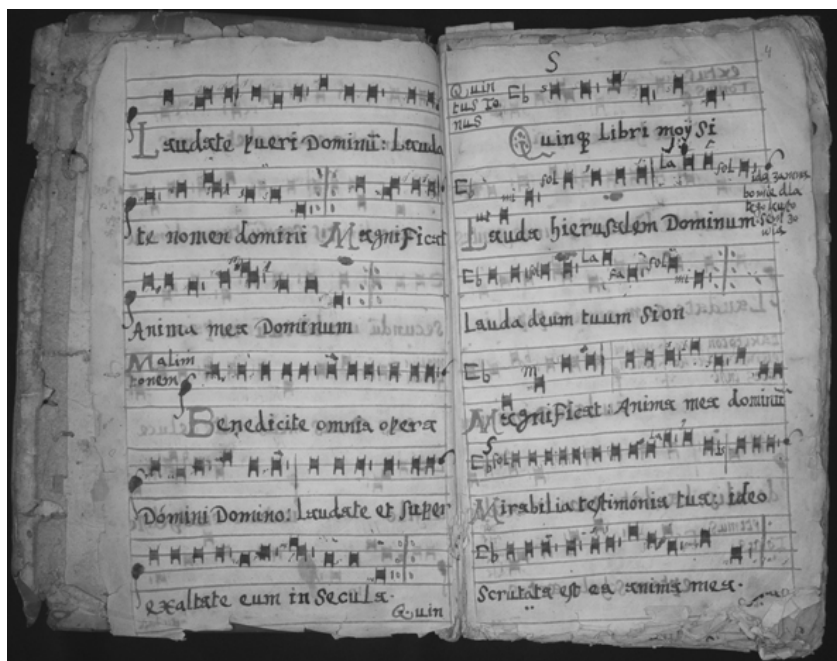 Laudate pueri Dominū: Lauda
te nomen domini Magnificat
Anima mea Dominum
Malim
tonem
Benedicite omnia opera
Domini Domino: Laudate et super
exaltate eum in Secula.
Quin
S
4
Quin
tus To
nus
Quinq Libri moysi
sol la sol
mi
ut
Lauda hierusalem Dominum
sol La sol
fa mi
Lauda deum tuum Sion
Magnificat: Anima mea dominū
sol
Mirabilia testimonia tua: ideo
Scrutata est ea anima mea.